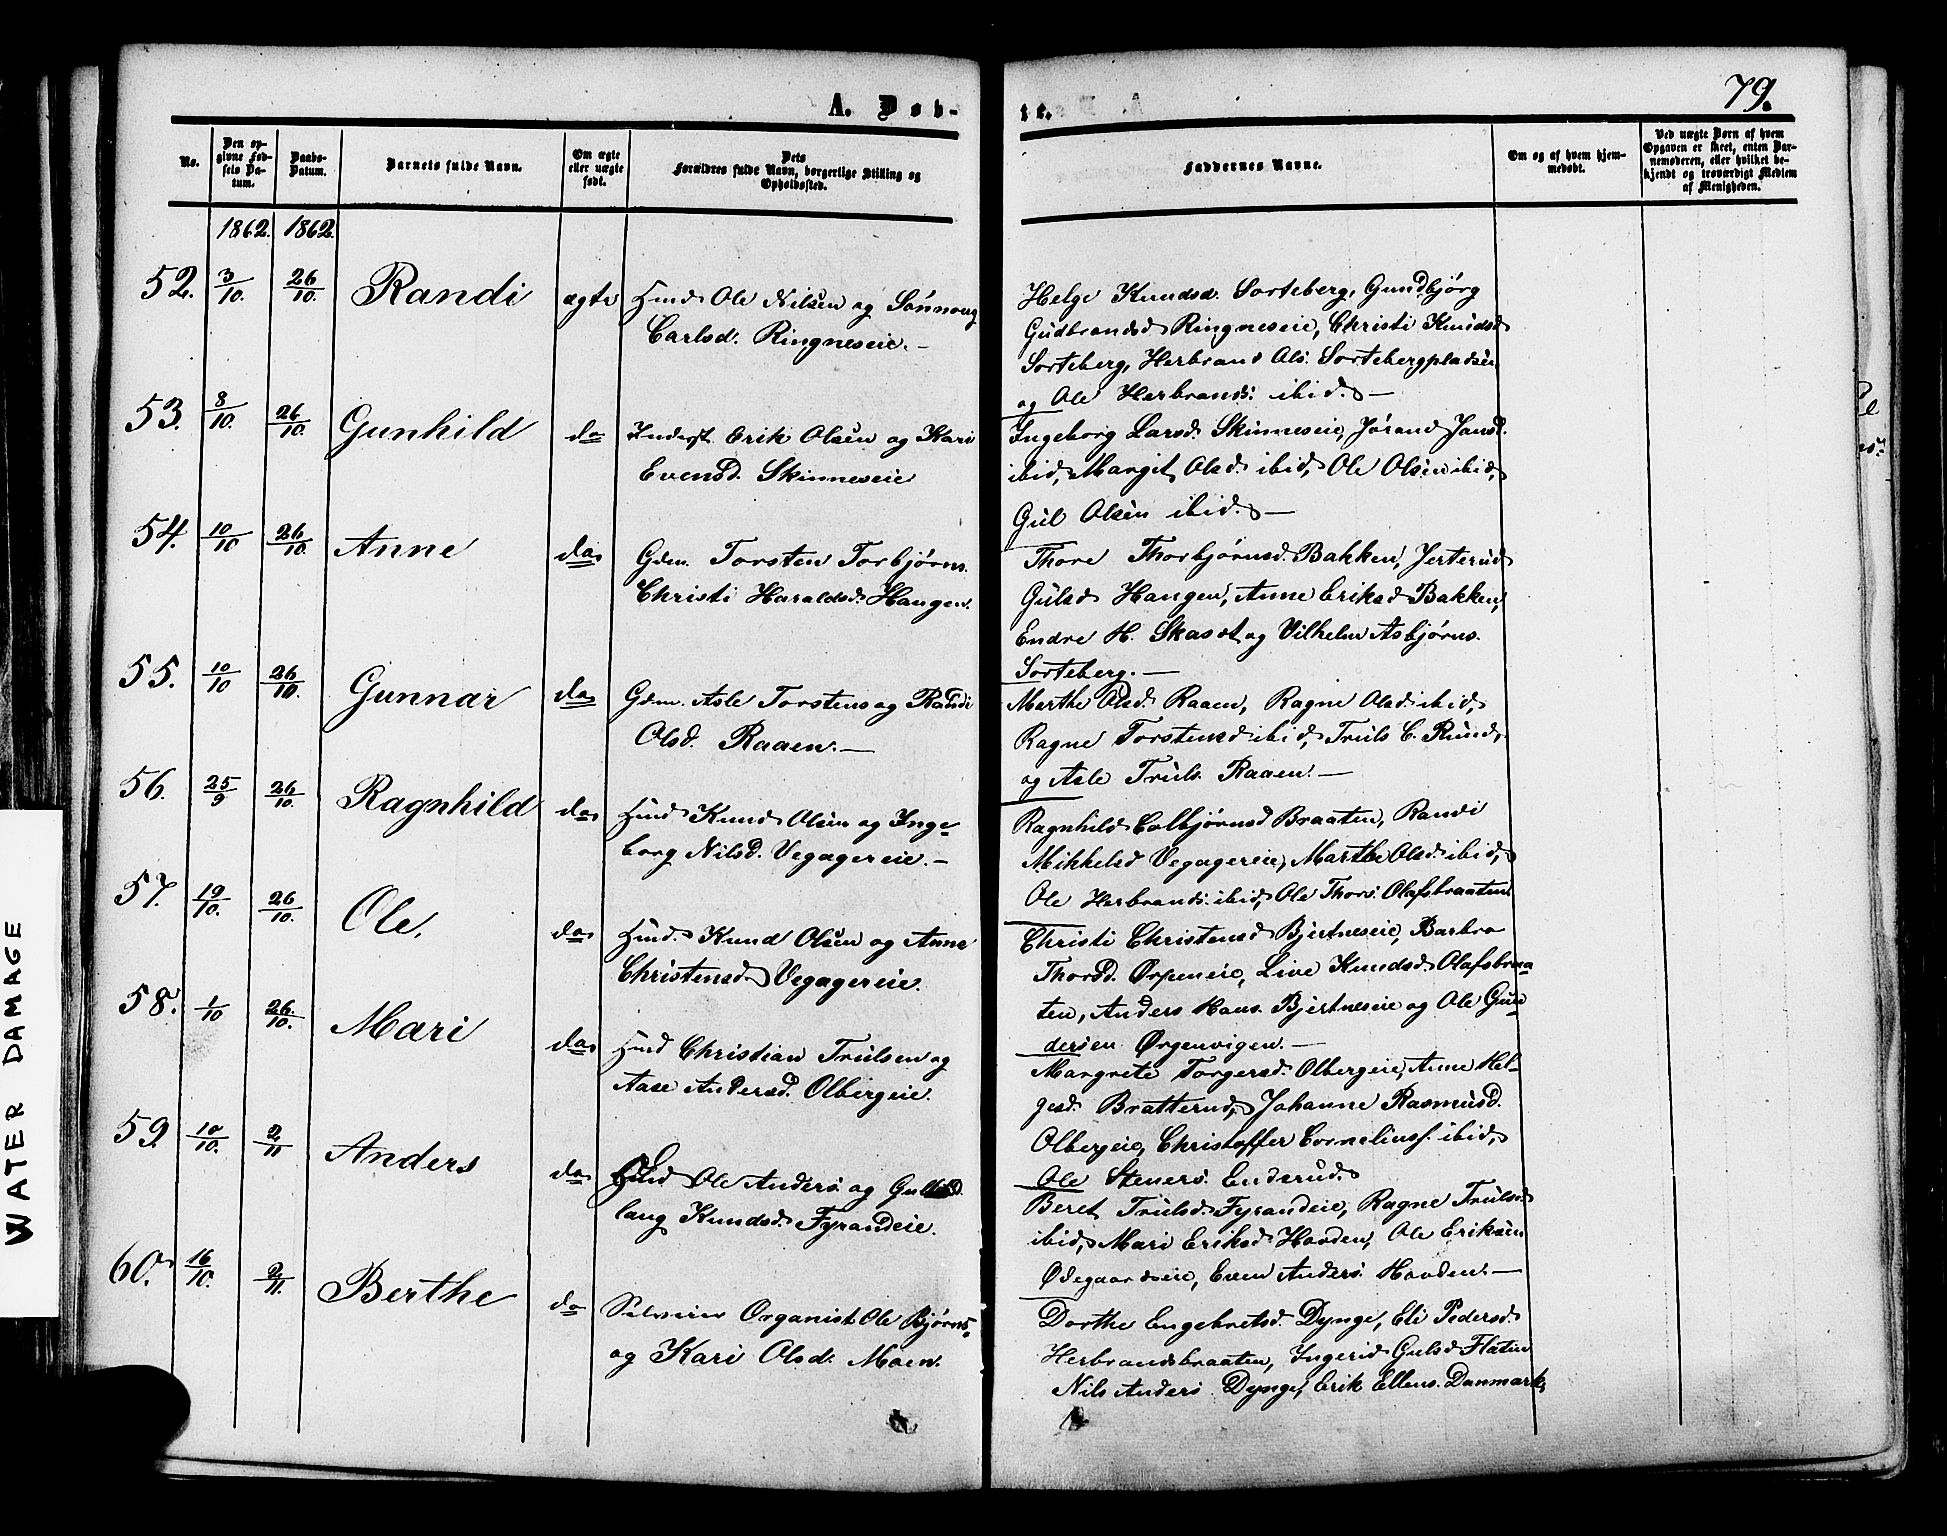 79.
A. Døb-
te.
No.
Den op-
givne Fød-
sels Da-
tum.
Daabs-
Datum.
Barnets fulde Navn.
Om ægte
eller uægte
født.
Dets
Forældres fulde Navn, borgerlige Stilling og
Opholdssted.
Faddernes Navne.
Om og af hvem hjem-
medøbt.
Ved uægte Børn af hvem
Opgaven er skeet, enten Bar-
nemoderen, eller hvilket be-
kjendt og troværdigt Medlem
af Menigheden.
1862. 1862.
52. 3/10. 26/10. Randi ægte Huusd Ole Nilsen og Sønnoug
Carlsd. Ringneseie. —
Helge Knudsd. Sorteberg, Gundbjørg
Gudbrandsd Ringneseie, Christi Knudsd
Sorteberg, Herbrand Ols. Sortebergpladsen
og Ole Herbrands. ibid. —
53. 8/10. 26/10. Gunhild do Inderst Erik Olsen og Kari
Evensd. Skinneseie
Ingeborg Larsd. Skinneseie, Jørand Jansd.
ibid, Margit Olsd. ibid, Ole Olsen ibid,
Gul Olsen ibid. —
54. 10/10 26/10. Anne do Gdm. Torsten Torbjørns.
Christi Haraldsd. Haugen.
Thore Thorbjørnsd. Bakken, Jerterud
Gulsd Haugen, Anne Eriksd Bakken,
Endre H. Skaset og Vilhelm Asbjørns.
Sorteberg. —
55. 10/10 26/10. Gunnar do Gdm. Asle Torstens og Randi
Olsd. Raaen. —
Marthe Olsd. Raaen, Ragne Olsd ibid,
Ragne Torstensd ibid, Truls C. Rud,
og Asle Truls. Raaen. —
56. 25/9 26/10. Ragnhild do Huusd Knud Olsen og Inge-
borg Nilsd. Vegagereie. —
Ragnhild Colbjørnsd Braaten, Randi
Mikkelsd Vegagereie, Marthe Olsd. ibid,
Ole Herbrands. ibid, Ole Thors. Olafsbraaten.
57. 19/10. 26/10. Ole. do Huusd. Knud Olsen og Anne
Christensd. Vegagereie.
Christi Christensd Bjertneseie, Barbro
Thorsd. Ørpeneie, Live Knudsd. Olafsbraa-
ten, Anders Hans. Bjertneseie og Ole Gun-
dersen Ørgenvigen. —
58. 1/10 26/10. Mari do Huusd Christian Trulsen og
Aase Andersd. Olbergeie.
Margrete Torgersd. Olbergeie, Anne Hel-
gesd. Bratterud, Johanne Rasmusd.
Olbergeie, Christoffer Corneliusf. ibid,
Ole Steners. Enderud.
59. 10/10. 2/11 Anders do Huusd Ole Anders. og Gul-
laug Knudsd. Fyrandeie.
Beret Trulsd. Fyrandeie, Ragne Trulsd.
ibid, Mari Eriksd. Hovden, Ole Eriksen
Ødegaardseie, Even Anders. Hovden. —
60. 16/10. 2/11. Berthe do Selveier Organist Ole Bjørns.
og Kari Olsd. Moen.
Dorthe Engebretsd. Dynge, Eli Pedersd.
Herbrandsbraaten, Ingerid Gulsd Flaten
Nils Anders Dynge, Erik Ellens. Danmark.
WATER DAMAGE